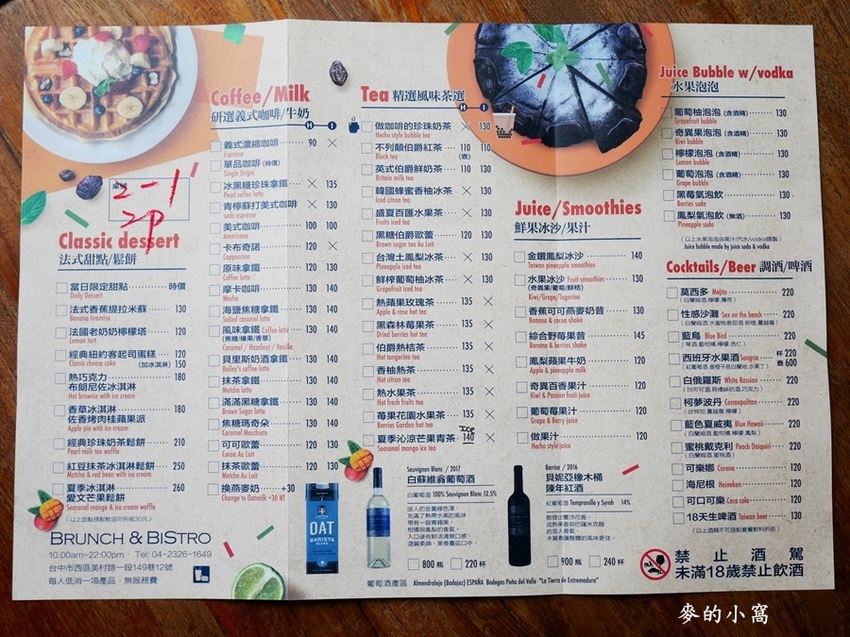 2-1
2P
Classic dessert
法式甜點/鬆餅
當日限定甜點 時價
Daily Dessert
法式香蕉提拉米蘇 130
Banana tiramisu
法國老奶奶檸檬塔 120
Lemon tart
經典紐約客起司蛋糕 120
Classic cheese cake (加冰淇淋) 150
熱巧克力 180
布朗尼佐冰淇淋
Hot brownie with ice cream
香草冰淇淋 180
佐香烤肉桂蘋果派
Apple pie with ice cream
經典珍珠奶茶鬆餅 210
Pearl milk tea waffle
紅豆抹茶冰淇淋鬆餅 250
Matcha & red bean with ice cream
夏季冰淇淋 260
愛文芒果鬆餅
Seasonal mango & ice cream waffle
BRUNCH & BISTRO
10:00am~22:00pm · Tel: 04-2326-1649
台中市西區美村路一段149巷12號
每人低消一項產品、無服務費
Coffee/Milk
研選義式咖啡/牛奶
H I
義式濃縮咖啡 90 ×
Espresso
單品咖啡 (時價)
Single Origin
冰黑糖珍珠拿鐵 × 135
Pearl coffee latte
青檸蘇打美式咖啡 × 130
soda espresso
美式咖啡 100 100
Americano
卡布奇諾 120 ×
Cappuccino
原味拿鐵 120 130
Coffee latte
摩卡咖啡 130 140
Mocha
海鹽焦糖拿鐵 130 140
Salted caramel latte
風味拿鐵 Coffee latte 130 140
(焦糖/榛果/香草)
Caramel / Hazelnut / Vanilla
貝里斯奶酒拿鐵 130 140
Bailey's coffee latte
抹茶拿鐵 130 140
Matcha latte
滿滿黑糖拿鐵 130 140
Brown Sugar latte
焦糖瑪奇朵 130 140
Caramel Macchiato
可可歐蕾 120 130
Cocoa Au Lait
抹茶歐蕾 120 130
Matcha Au Lait
換燕麥奶 +30
Change to Oatmilk +30 NT
Tea 精選風味茶選
H I
做咖啡的珍珠奶茶 × 130
Hecho style bubble tea
不列顛伯爵紅茶 110 110
Black tea (壺)
英式伯爵鮮奶茶 130 130
Britain milk tea
韓國蜂蜜香柚冰茶 × 130
Iced citron tea
盛夏百匯水果茶 × 130
Fruits iced tea
黑糖伯爵歐蕾 120 130
Brown sugar tea Au Lait
台灣土鳳梨冰茶 × 130
Pineapple iced tea
鮮榨葡萄柚冰茶 × 130
Grapefruit iced tea
熱蘋果玫瑰茶 135 ×
Apple & rose hot tea
黑森林莓果茶 130 ×
Dried berries hot tea
伯爵熱桔茶 130 ×
Hot tangerine tea
香柚熱茶 130 ×
Hot citron tea
熱水果茶 130 ×
Hot fresh fruits tea
莓果花園水果茶 130 ×
Berries Garden hot tea
夏季沁涼芒果青茶 140 ×
Seasonal mango ice tea
ICE
OAT
BARISTA
Sauvignon Blanc / 2017
白蘇維翁葡萄酒
白葡萄酒 100% Sauvignon Blanc 12.5%
800 瓶 220 杯
Barrica / 2016
貝妮亞橡木桶
陳年紅酒
紅葡萄酒 Tempranillo y Syrah 14%
900 瓶 240 杯
葡萄酒產區 Almendralejo (Badajoz) ESPAÑA Bodegas Peña del Valle "La Tierra de Extremadura"
Juice/Smoothies
鮮果冰沙/果汁
金鑽鳳梨冰沙 140
Taiwan pineapple smoothies
水果冰沙 Fruit smoothies 130
(奇異果/葡萄/鮮桔)
Kiwi/Grape/Tagerine
香蕉可可燕麥奶昔 130
Banana & cocoa shake
綜合野莓果昔 145
Banana & berries shake
鳳梨蘋果牛奶 120
Apple & pineapple milk
奇異百香果汁 120
Kiwi & Passion fruit juice
葡萄莓果汁 120
Grape & Berry juice
做果汁 120
Hecho style juice
Juice Bubble w/vodka
水果泡泡
葡萄柚泡泡 (含酒精) 130
Grapefruit bubble
奇異果泡泡 (含酒精) 130
Kiwi bubble
檸檬泡泡 (含酒精) 130
Lemon bubble
葡萄泡泡 (含酒精) 130
Grape bubble
黑莓氣泡飲 130
Berries soda
鳳梨氣泡飲 (無酒) 130
Pineapple soda
Juice bubble made by juice soda & vodka
Cocktails/Beer 調酒/啤酒
莫西多 Mojito 220
性感沙灘 Sex on the beach 220
藍鳥 Blue Bird 220
西班牙水果酒 Sangria 杯 220
壺 600
白俄羅斯 White Russian 220
柯夢波丹 Cosmopolitan 220
藍色夏威夷 Blue Hawaii 220
蜜桃戴克利 Peach Daiquiri 220
可樂娜 Corona 120
海尼根 Heineken 120
可口可樂 Coca cola 120
18天生啤酒 Taiwan beer 130
禁止酒駕
未滿18歲禁止飲酒
麥的小窩